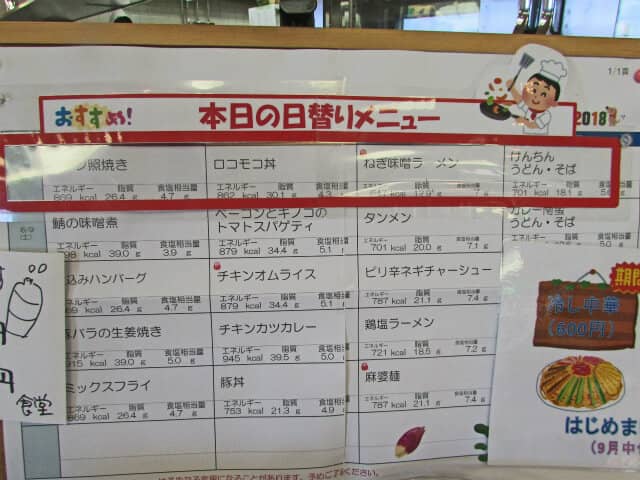 1/1頁
おすすめ!
本日の日替りメニュー
2018
照焼き
エネルギー 脂質 食塩相当量
869 kcal 26.4 g 4.7 g
ロコモコ丼
エネルギー 脂質 食塩相当量
862 kcal 30.1 g 4.3
ねぎ味噌ラーメン
けんちん
うどん・そば
エネルギー 脂質 食塩相当量
701 kcal 18.1 g
鯖の味噌煮
エネルギー 脂質 食塩相当量
kcal 39.0 g 3.9 g
ベーコンとキノコの
トマトスパゲティ
エネルギー 脂質 食塩相当量
879 kcal 34.4 g 5.1 g
タンメン
エネルギー 脂質 食塩相当量
701 kcal 20.0 g 7.1 g
うどん・そば
込みハンバーグ
エネルギー 脂質 食塩相当量
869 kcal 26.4 g 4.7 g
チキンオムライス
エネルギー 脂質 食塩相当量
879 kcal 34.4 g 5.1 g
ピリ辛ネギチャーシュー
エネルギー 脂質 食塩相当量
787 kcal 21.1 g 7.4 g
バラの生姜焼き
エネルギー 脂質 食塩相当量
915 kcal 39.0 g 5.0 g
チキンカツカレー
エネルギー 脂質 食塩相当量
945 kcal 39.5 g 5.0 g
鶏塩ラーメン
エネルギー 脂質 食塩相当量
721 kcal 18.5 g 7.2 g
ミックスフライ
エネルギー 脂質 食塩相当量
869 kcal 26.4 g 4.7 g
豚丼
エネルギー 脂質 食塩相当量
753 kcal 21.3 g 4.9 g
麻婆麺
エネルギー 脂質 食塩相当量
787 kcal 21.1 g 7.4 g
期間
冷し中華
(600円)
はじめま
(9月中
円
食堂